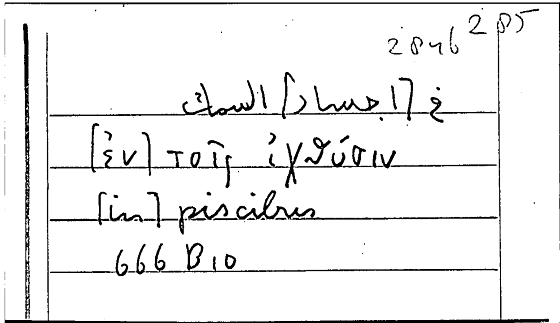 2846 285
في [اجساد] السمك
[ἐν] τοῖς ἰχθύσιν
[in] piscibus
666 B 10